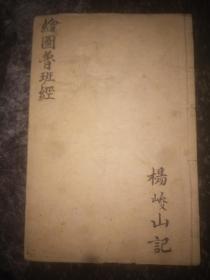 繪圖魯班經
楊峻山記